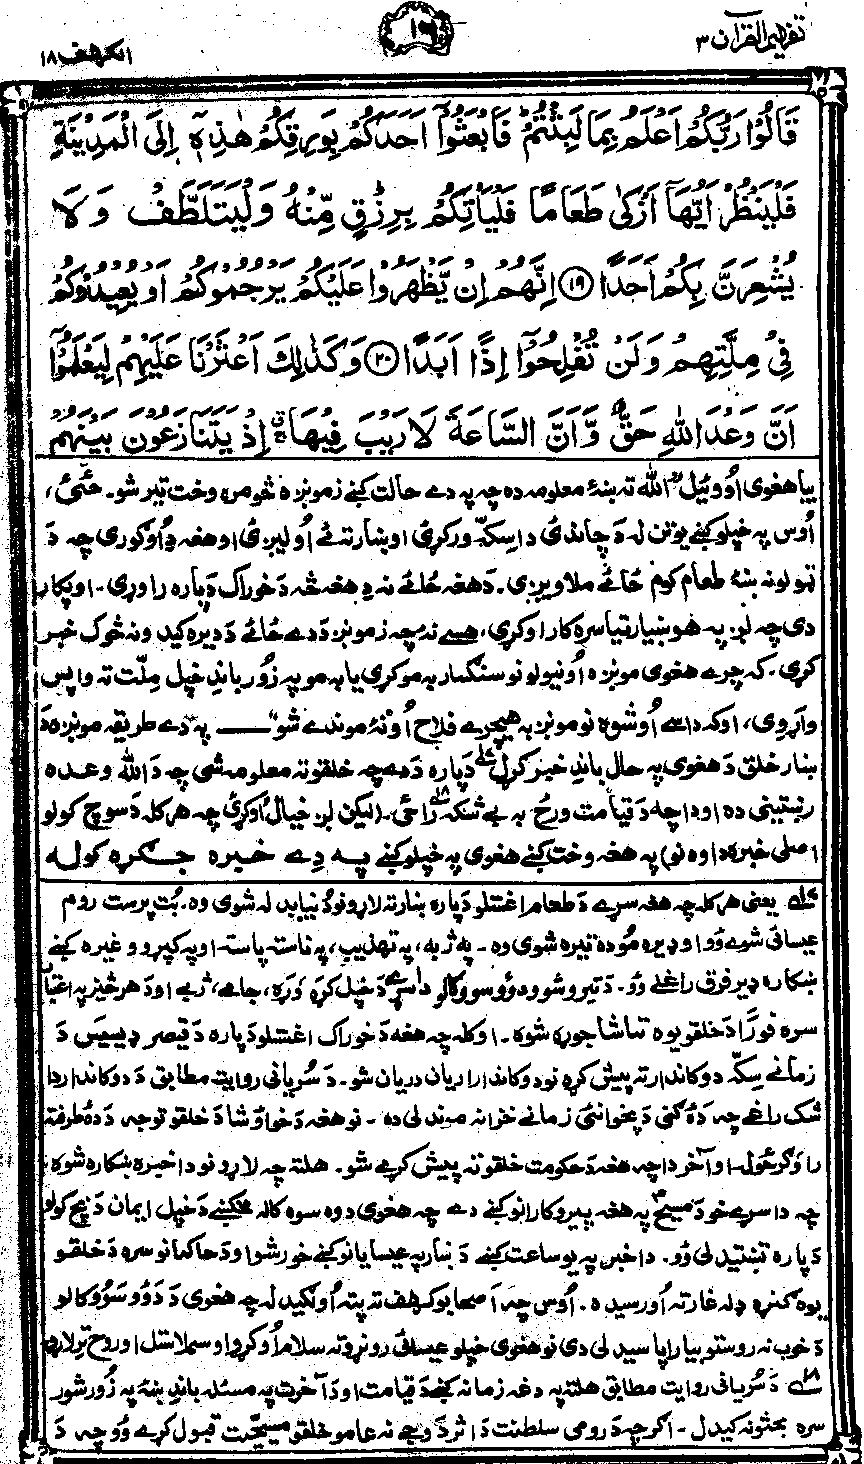 تفہیم القرآن ۳
۱۶
الکہف ۱۸
قَالُوْا رَبُّكُمْ اَعْلَمُ بِمَا لَبِثْتُمْ فَابْعَثُوْٓا اَحَدَكُمْ بِوَرِقِكُمْ هٰذِهٖٓ اِلَى الْمَدِيْنَةِ
فَلْيَنْظُرْ اَيُّهَآ اَزْكٰى طَعَامًا فَلْيَاْتِكُمْ بِرِزْقٍ مِّنْهُ وَلْيَتَلَطَّفْ وَلَا
يُشْعِرَنَّ بِكُمْ اَحَدًا ۝۱۹ اِنَّهُمْ اِنْ يَّظْهَرُوْا عَلَيْكُمْ يَرْجُمُوْكُمْ اَوْ يُعِيْدُوْكُمْ
فِيْ مِلَّتِهِمْ وَلَنْ تُفْلِحُوْٓا اِذًا اَبَدًا ۝۲۰ وَكَذٰلِكَ اَعْثَرْنَا عَلَيْهِمْ لِيَعْلَمُوْٓا
اَنَّ وَعْدَ اللّٰهِ حَقٌّ وَّاَنَّ السَّاعَةَ لَا رَيْبَ فِيْهَا ۚ اِذْ يَتَنَازَعُوْنَ بَيْنَهُمْ
بیا هغوی اُووئیل "الله ته ښۀ معلومه ده چه په دے حالت کښے زمونږه څومره وخت تېر شو۔ ځئ،
اُوس په خپلو کښے یو تن له د چاندئ دا سکّه ورکړئ او ښار ته ئے اُولېږئ او هغه دِ اُوګوری چه د
ټولو نه ښۀ طعام کوم ځائے ملاوېږی۔ د هغه ځائے نه دِ هغه څه د خوراک دپاره راوړی۔ او پکار
دی چه لږ په هوښیارتیا سره کار اوکړی، هسے نه چه زمونږ د دے ځائے د دیره کېدو نه څوک خبر
کړی۔ که چرے هغوی مونږه اُونیولو نو سنګسار به مو کړی یا به مو په زور باندِ خپل ملّت ته واپس
واړوی، او که داسے اُوشوه نو مونږ به هیچرے فلاح اُونۀ موندے شو" ــــ په دے طریقه مونږه د
ښار خلق د هغوی په حال باندِ خبر کړل دپاره د دے چه خلقو ته معلومه شی چه د الله وعده
رښتینی ده او دا چه د قیامت ورځ به بے شکه راځی۔ (لیکن لږ خیال اُوکړئ چه هر کله د سوچ کولو
اصلی خبره دا وه نو) په هغه وخت کښے هغوی په خپلو کښے په دِے خبره جګړه کوله
یعنی هر کله چه هغه سړے د طعام اغستلو دپاره ښار ته لاړو نو دُنیا بدله شوی وه۔ بُت پرست روم
عیسائی شوے وُو او ډېره موده تېره شوی وه۔ په ژبه، په تهذیب، په ناسته پاسته او په کپړو وغیره کښے
ښکاره ډېر فرق راغلے وُو۔ د تېرو شوو دوؤ سوو کالو دا سړے د خپل کړه وړه، جامے، ژبے او د هر څیز په اعتبار
سره فوراً د خلقو یوه تماشا جوړه شوه۔ او کله چه هغه د خوراک اغستلو دپاره د قیصر ډیسیس د
زمانے سِکّه دوکاندار ته پیش کړه نو دوکاندار اریان دریان شو۔ د سُریانی روایت مطابق د دوکاندار دا
شک راغے چه دۀ ګنی د پخوانئ زمانے خزانه موندلی ده۔ نو هغه د خوا و شا د خلقو توجه د دۀ طرف ته
را وګرځوله او آخر دا چه هغه د حکومت خلقو ته پیش کړے شو۔ هلته چه لاړو نو دا خبره ښکاره شوه
چه دا سړے خو د مسیحؑ په هغه پیروکارانو کښے دے چه هغوی دوه سوه کاله مخکښے د خپل ایمان د بچ کولو
دپاره تښتېدلی وُو۔ دا خبر په یو ساعت کښے د ښار په عیسایانو کښے خور شو او د حاکمانو سره د خلقو
یوه ګنړه ډله غار ته اُورسېده۔ اُوس چه اَصحابو کهف ته پته اُولګېدله چه هغوی د دوؤ سوؤ کالو
د خوب نه روستو بیا را پاسېدلی دی نو هغوی خپلو عیسائی روڼو ته سلام اُوکړو او سملاستل او روح ترلاړ
د سُریانی روایت مطابق هلته په دغه زمانه کښے د قیامت او د آخرت په مسئله باندِ ښۀ په زور شور
سره بحثونه کېدل۔ اګرچه د رومی سلطنت د اثر د وجے نه عامو خلقو مسیحیّت قبول کړے وُو چه د